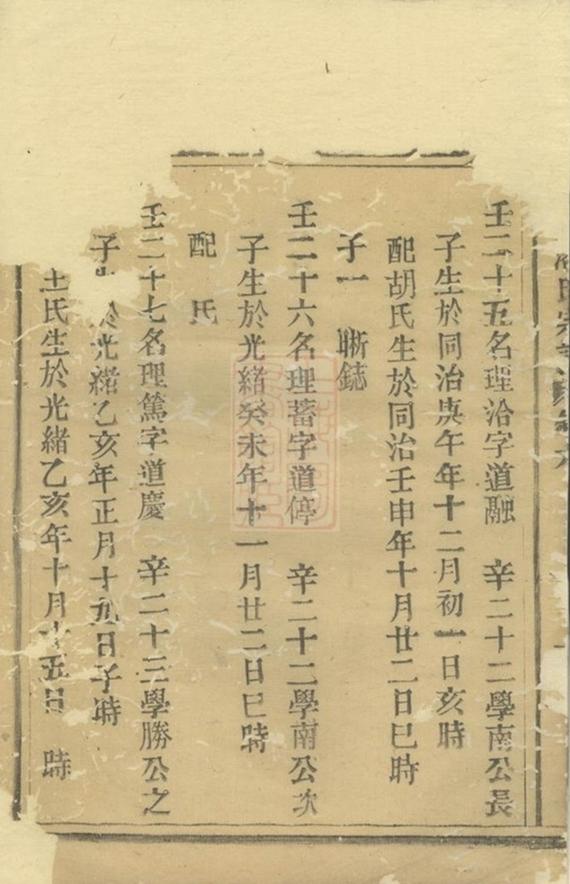 壬二十五名理洽字道融　辛二十二學南公長
子生於同治庚午年十二月初一日亥時
配胡氏生於同治壬申年十月廿二日巳時
子一　晣鋕
壬二十六名理蓄字道停　辛二十二學南公次
子生於光緒癸未年十一月廿二日巳時
配　氏
壬二十七名理篤字道慶　辛二十三學勝公之
子　於光緒乙亥年正月十九日子時
氏生於光緒乙亥年十月　五日　時